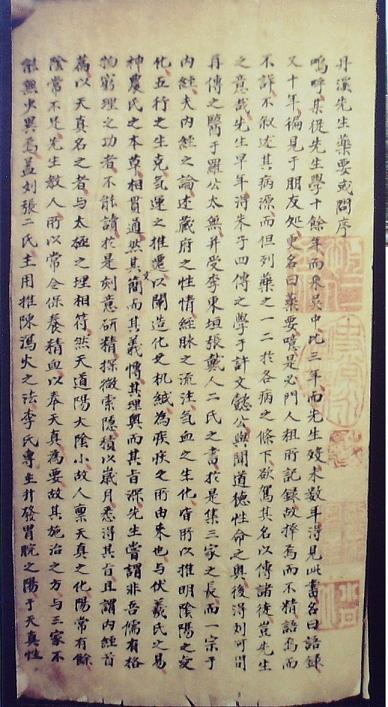 丹溪先生藥要或問序
嗚呼某從先生學十餘年而來吳中比三年而先生歿未數年得見此書名曰語錄
又十年徧見于朋友処更名曰藥要噫是必門人粗所記録故擇焉而不精語焉而
不詳不叙述其病源而但列藥之一二扵各病之條下欲駕其名以傳諸徒豈先生
之意哉先生早年得朱子四傳之學于許文懿公與聞道德性命之奥後得刘河間
再傳之醫于羅公太無并受李東垣張戴人二氏之書扵是集三家之長而一宗于
内經夫内經之論述蔵府之性情經脉之流注氣血之生化皆所以推明陰陽之變
化五行之生克氣運之推遷以闡造化之机緘為疾疢之所由來也与伏羲氏之易
神農氏之本草相貫通然其文簡而其義愽其理奥而其旨深先生嘗謂非吾儒有格
物窮理之功者不能讀扵是刻意研精探微索隠積以歲月悉得其旨且謂内經首
篇以天真名之者与太極之理相符然天道陽大陰小故人禀天真之化陽常有餘
陰常不足先生教人所以常令保養精血以奉天真為要故其施治之方与三家不
能無少異焉盖刘張二氏主用推陳瀉火之法李氏專主升發胃脘之陽于天真性